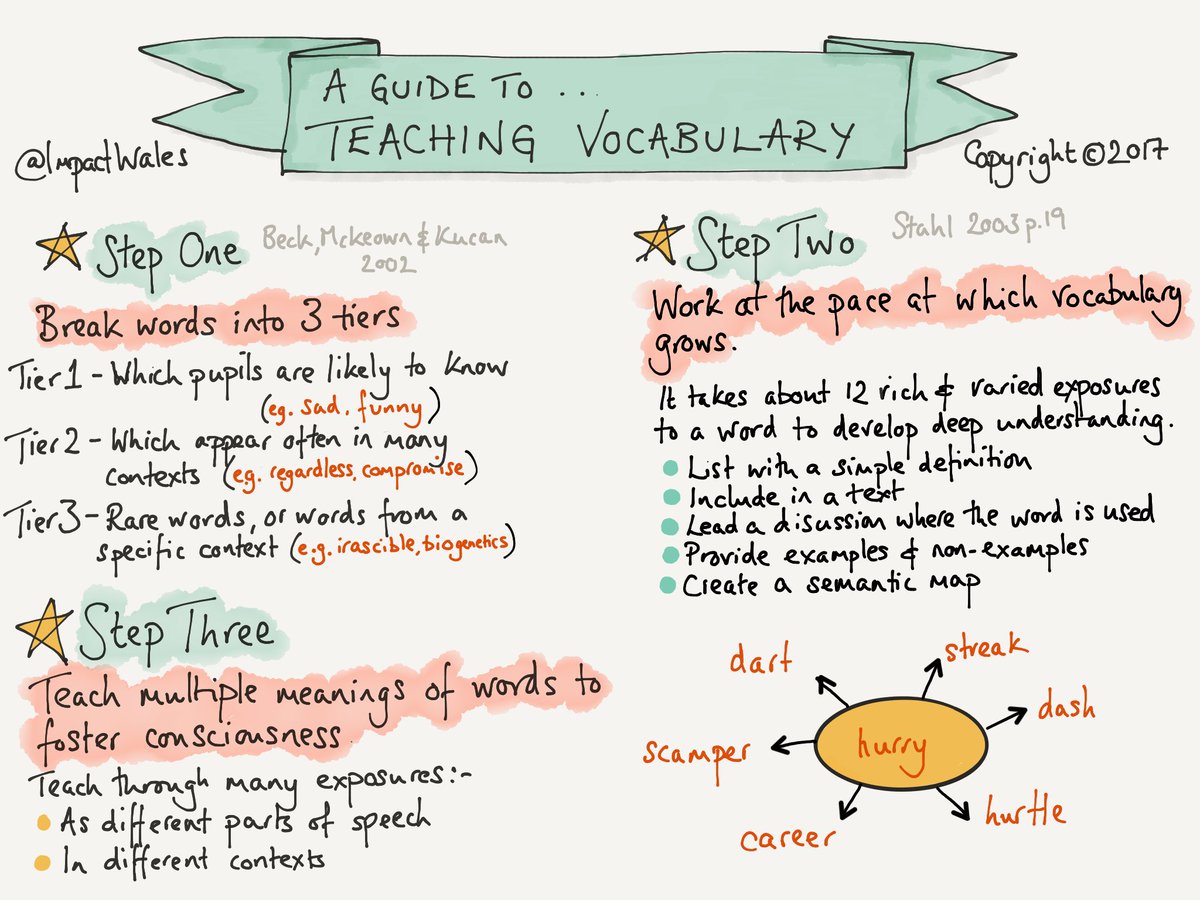 A GUIDE TO ...
TEACHING VOCABULARY
@ImpactWales
Copyright©2017
Step One
Beck, Mckeown & Kucan
2002
Break words into 3 tiers
Tier 1 - Which pupils are likely to know
(eg. sad, funny)
Tier 2 - Which appear often in many
contexts (e.g. regardless, compromise)
Tier 3 - Rare words, or words from a
specific context (e.g. irascible, biogenetics)
Step Two
Stahl 2003 p.19
Work at the pace at which vocabulary
grows.
It takes about 12 rich & varied exposures
to a word to develop deep understanding.
List with a simple definition
Include in a text
Lead a disussion where the word is used
Provide examples & non-examples
Create a semantic map
dart
streak
dash
scamper
hurry
career
hurtle
Step Three
Teach multiple meanings of words to
foster consciousness
Teach through many exposures:-
As different parts of speech
In different contexts